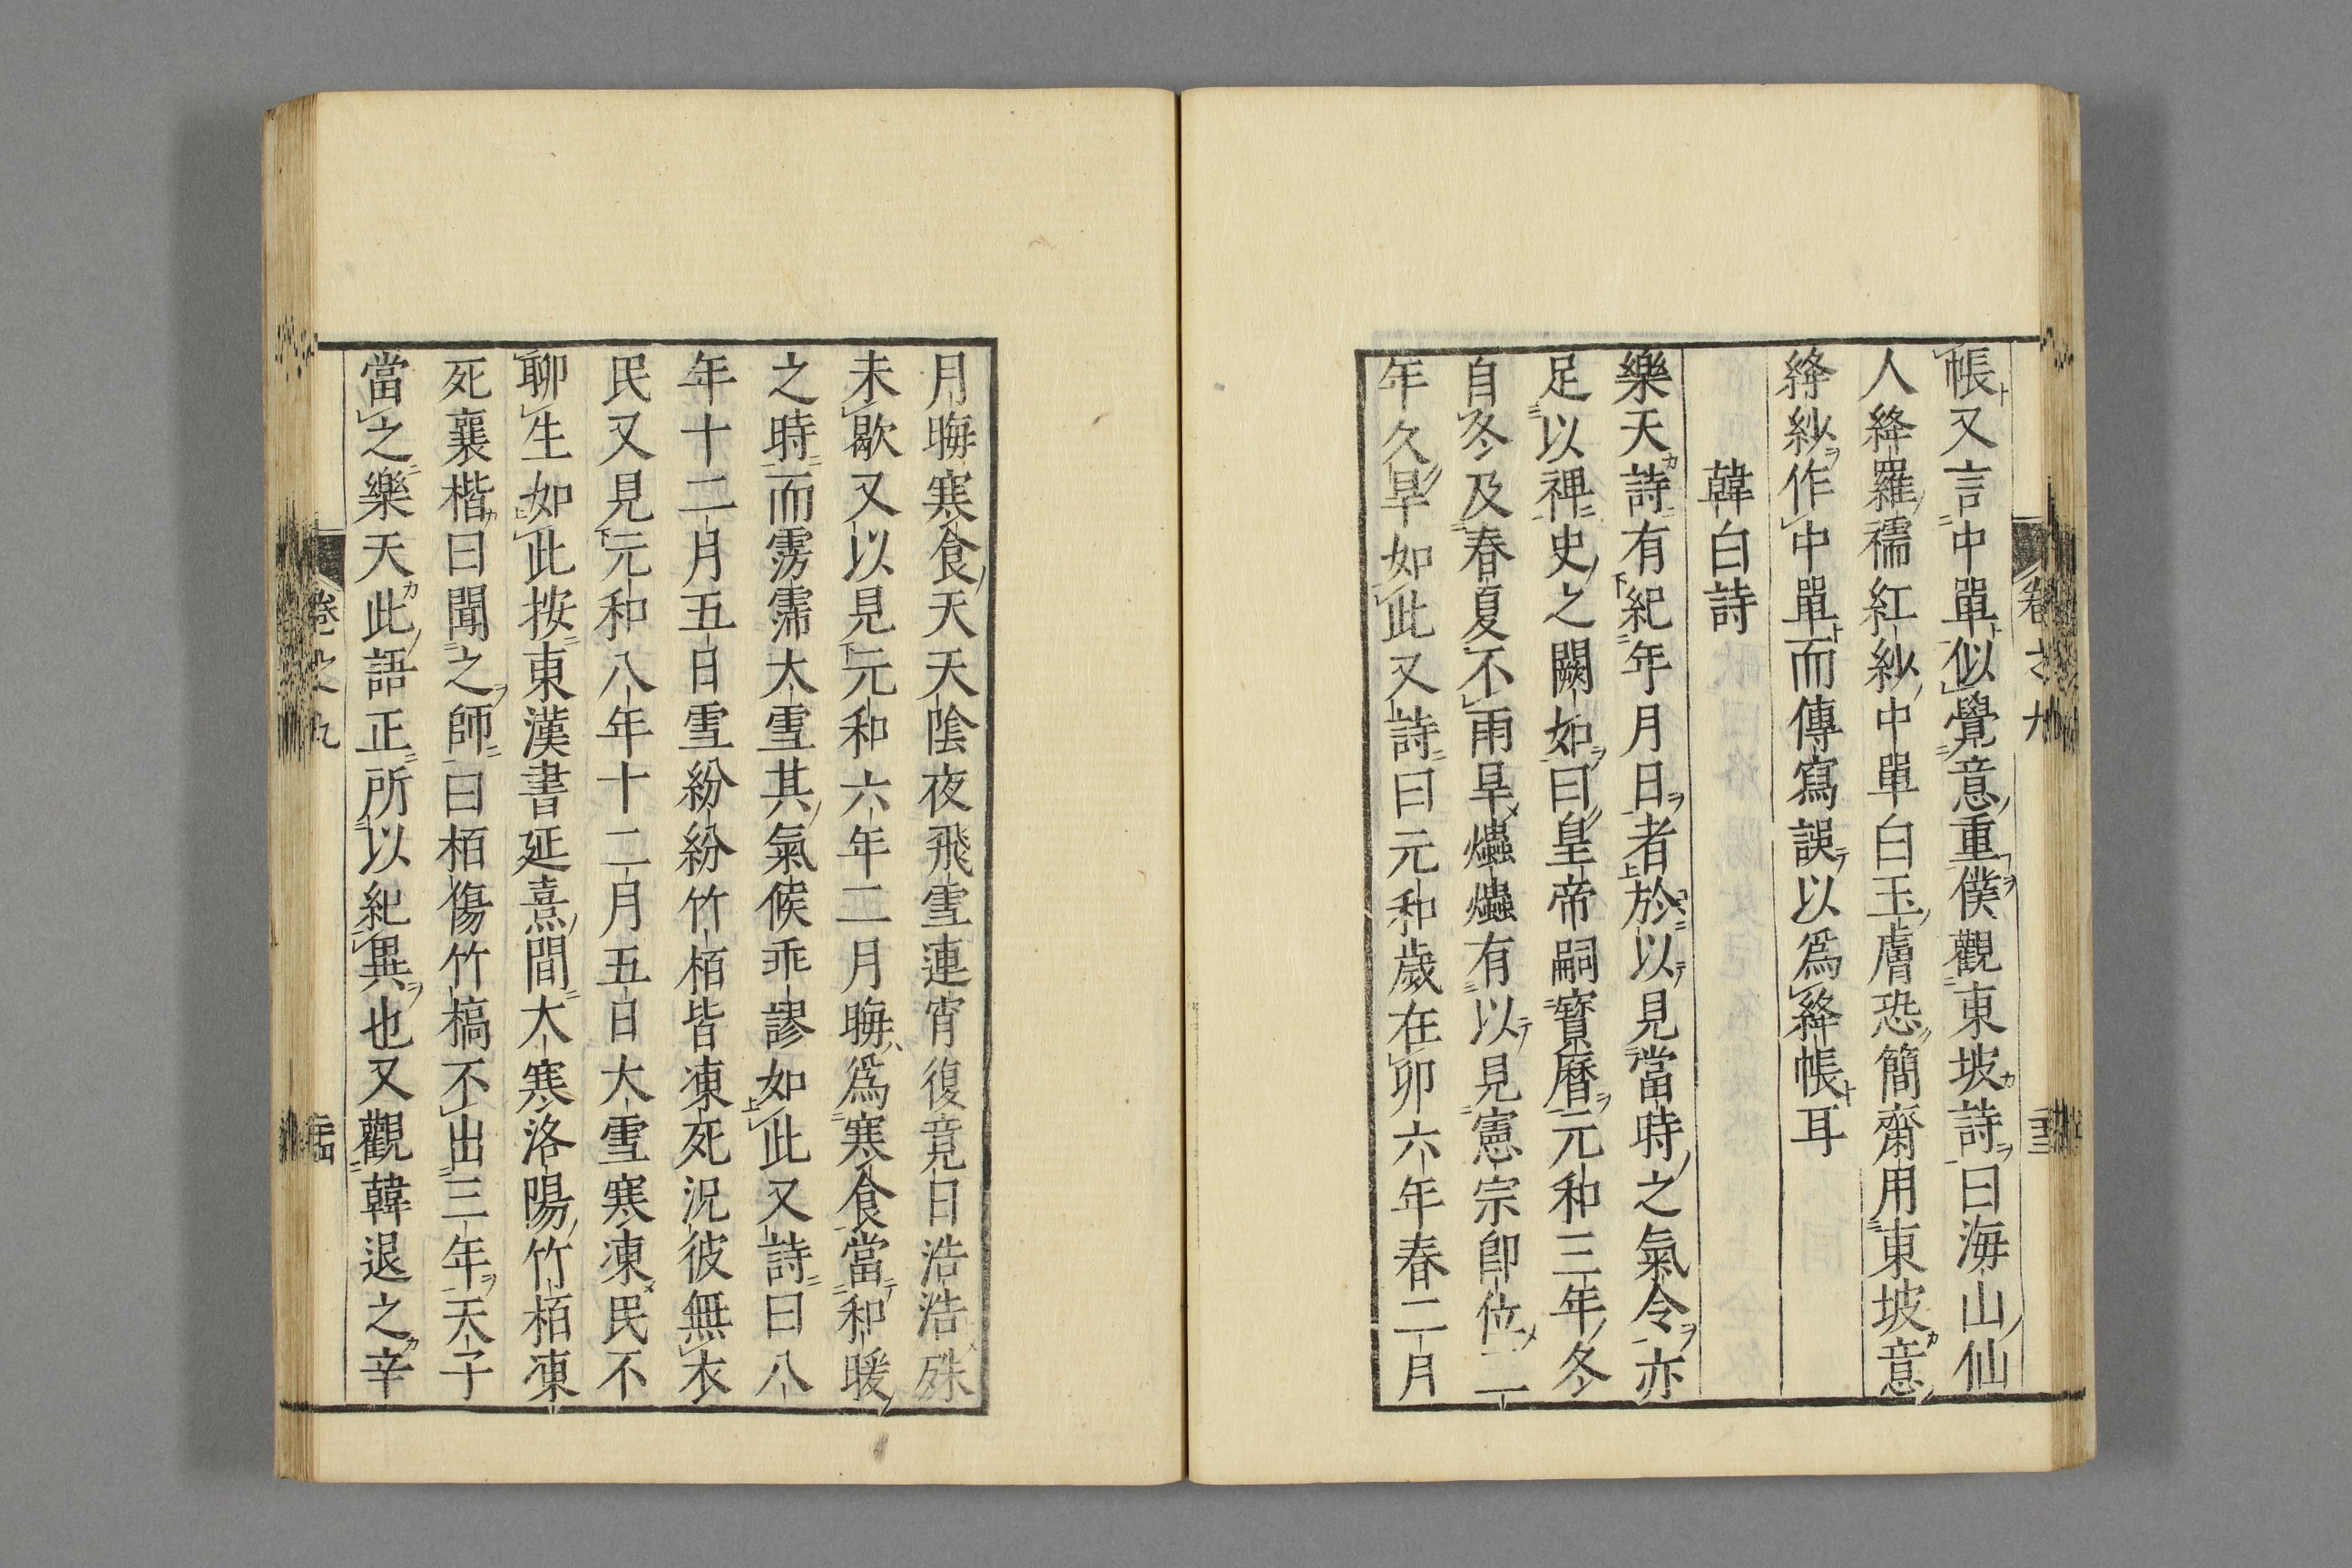 帳又言中單似覺意重僕觀東坡詩曰海山仙
人絳羅襦紅紗中單白玉膚恐簡齋用東坡意
絳紗作中單而傳寫誤以爲絳帳耳
韓白詩
樂天詩有紀年月日者於以見當時之氣令亦
足以裨史之闕如曰皇帝嗣寶曆元和三年冬
自冬及春夏不雨旱爞爞有以見憲宗卽位二
年久旱如此又詩曰元和歲在卯六年春二月
月晦寒食天天陰夜飛雪連宵復竟日浩浩殊
未歇又以見元和六年二月晦爲寒食當和暖
之時而雱霈大雪其氣候乖謬如此又詩曰八
年十二月五日雪紛紛竹栢皆凍死況彼無衣
民又見元和八年十二月五日大雪寒凍民不
聊生如此按東漢書延熹間大寒洛陽竹栢凍
死襄楷曰聞之師曰栢傷竹槁不出三年天子
當之樂天此語正所以紀異也又觀韓退之辛
卷之九